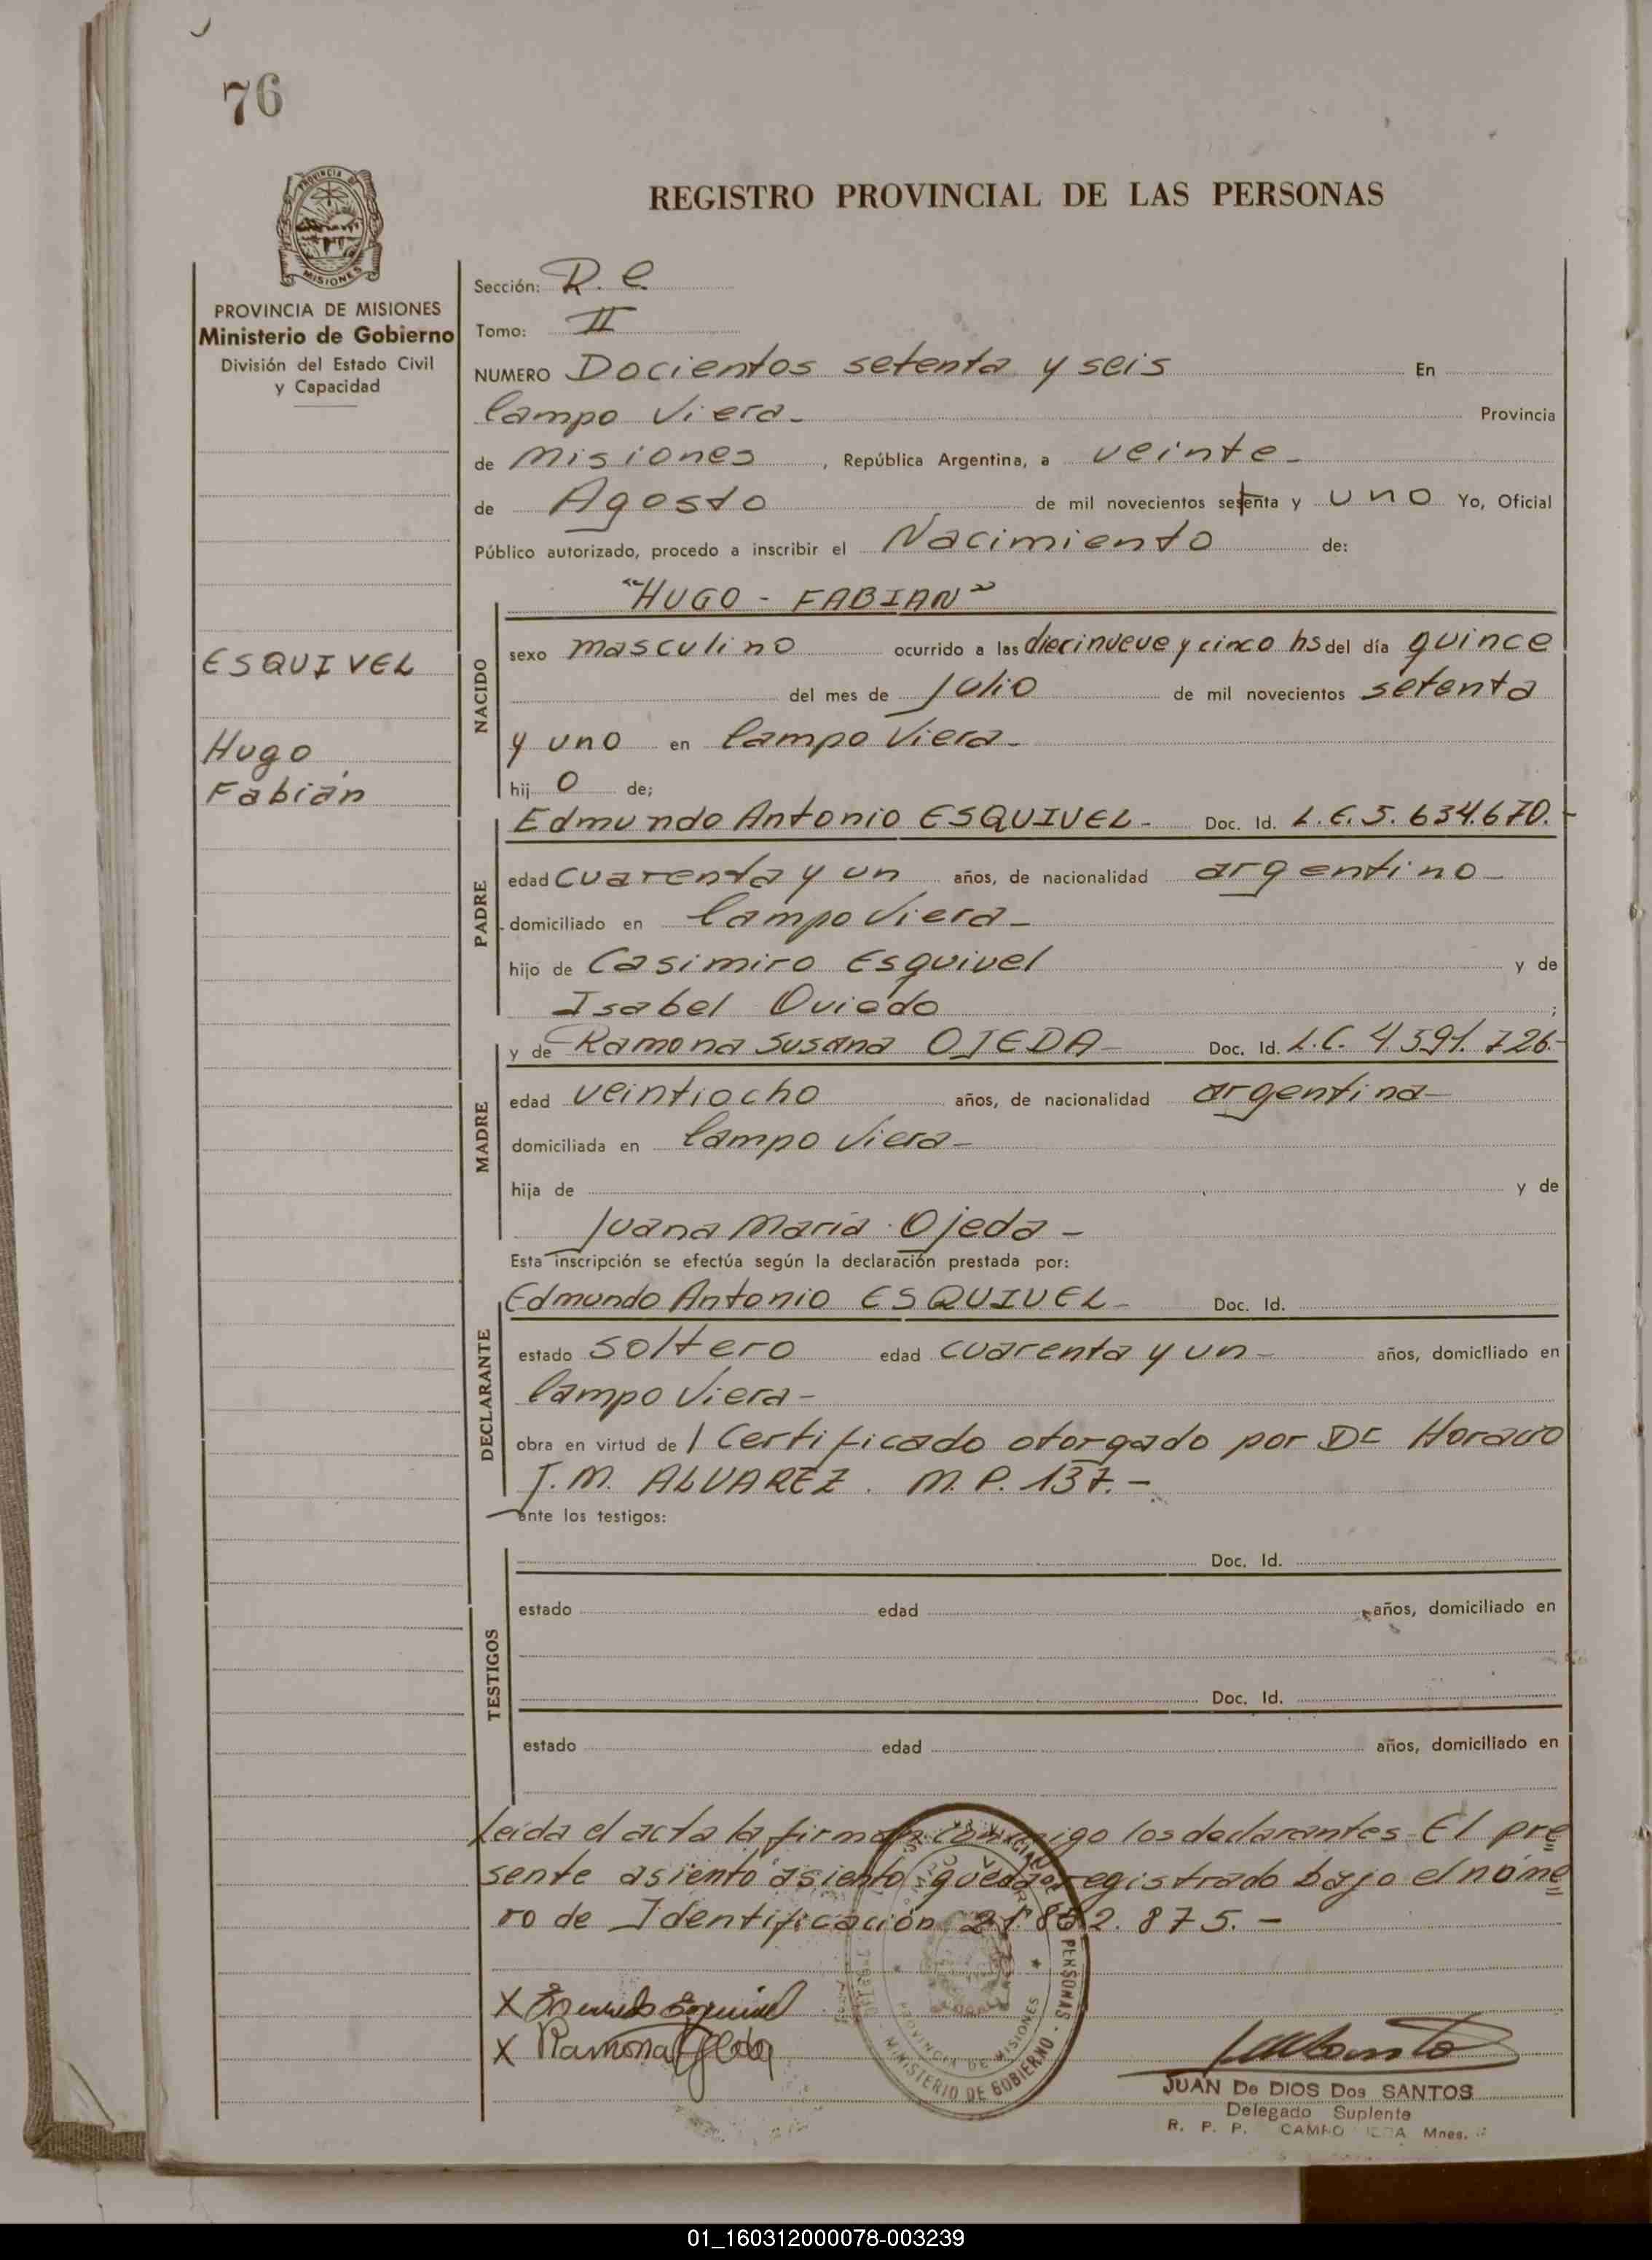 76
PROVINCIA DE
MISIONES
REGISTRO PROVINCIAL DE LAS PERSONAS
PROVINCIA DE MISIONES
Ministerio de Gobierno
División del Estado Civil
y Capacidad
ESQUIVEL
Hugo
Fabián
Sección: R. C
Tomo: II
NUMERO Docientos setenta y seis En
Campo Viera- Provincia
de Misiones , República Argentina, a veinte-
de Agosto de mil novecientos setenta y uno Yo, Oficial
Público autorizado, procedo a inscribir el Nacimiento de:
"HUGO - FABIAN"
NACIDO
sexo masculino ocurrido a las diecinueve y cinco hs del día quince
del mes de Julio de mil novecientos setenta
y uno en Campo Viera-
hij o de;
PADRE
Edmundo Antonio ESQUIVEL- Doc. Id. L.E. 5.634.670.-
edad cuarenta y un años, de nacionalidad argentino-
domiciliado en Campo Viera-
hijo de Casimiro Esquivel y de
Isabel Oviedo ;
MADRE
y de Ramona Susana OJEDA- Doc. Id. L.C. 4.591.726.-
edad veintiocho años, de nacionalidad argentina-
domiciliada en Campo Viera-
hija de y de
Juana María Ojeda-
Esta inscripción se efectúa según la declaración prestada por:
DECLARANTE
Edmundo Antonio ESQUIVEL- Doc. Id.
estado soltero edad cuarenta y un- años, domiciliado en
Campo Viera-
obra en virtud de 1 Certificado otorgado por Dr Horacio
J.M. ALVAREZ. M.P. 137.-
ante los testigos:
TESTIGOS
Doc. Id.
estado edad años, domiciliado en
Doc. Id.
estado edad años, domiciliado en
Leida el acta la firman conmigo los declarantes- El pre
sente asiento asiento queda registrado bajo el núme
ro de Identificación 875.-
PERSONAS - MINISTERIO DE GOBIERNO -
PROVINCIA DE MISIONES
X Esquivel
X Ramona Ojeda
JUAN De DIOS Dos SANTOS
Delegado Suplente
R. P. P. CAMPO Mnes.
01_160312000078-003239